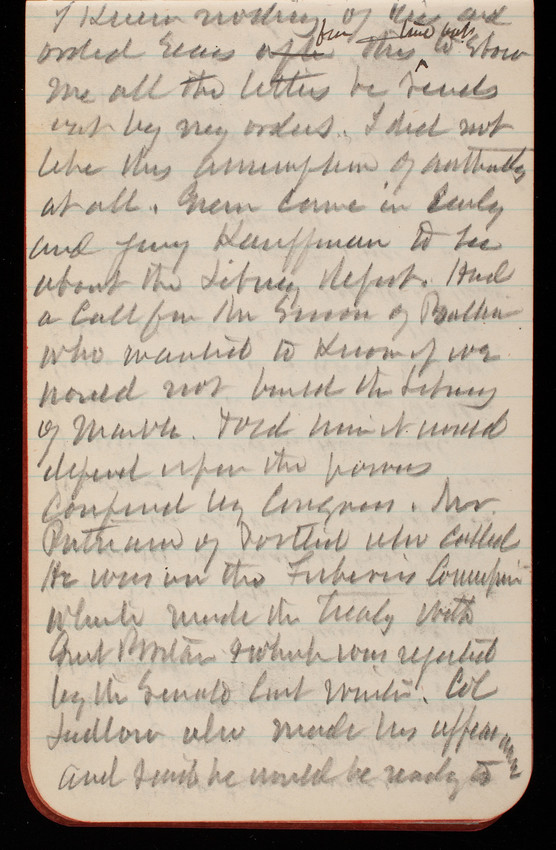 I knew nothing of this and
from time
orded Evans after this to show
me all the letters he sends
out by my orders. I did not
like this assumption of authority
at all. Green came in early
and Kauffman to see
about the Library Report. Had
a Call from Mr of
who wanted to Know if we
would not build the Library
of Marble. Told him it would
depend upon the powers
confered by Congress. Mr.
Putnam of who called
He was on the Fisheries Commission
which made the treaty with
Great Britain & which was rejected
by the Senate last winter. Col
Ludlow also made his appearance
and said he would be ready to